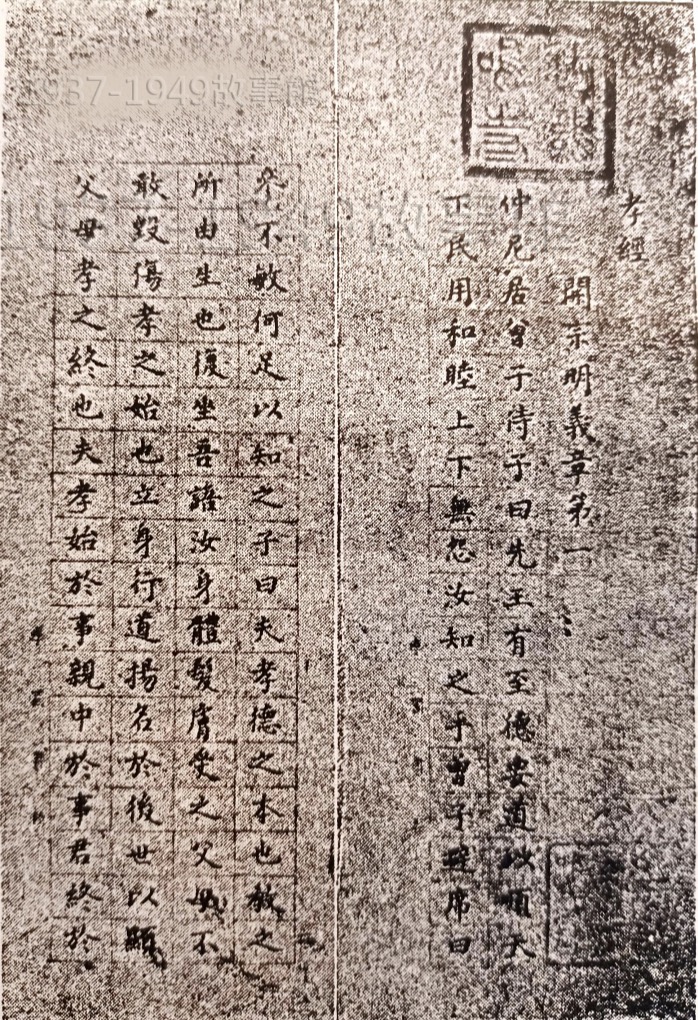 1937-1949故事館
孝經
開宗明義章第一
仲尼居曾子侍子曰先王有至德要道以順天
下民用和睦上下無怨汝知之乎曾子避席曰
參不敏何足以知之子曰夫孝德之本也教之
所由生也復坐吾語汝身體髮膚受之父母不
敢毀傷孝之始也立身行道揚名於後世以顯
父母孝之終也夫孝始於事親中於事君終於